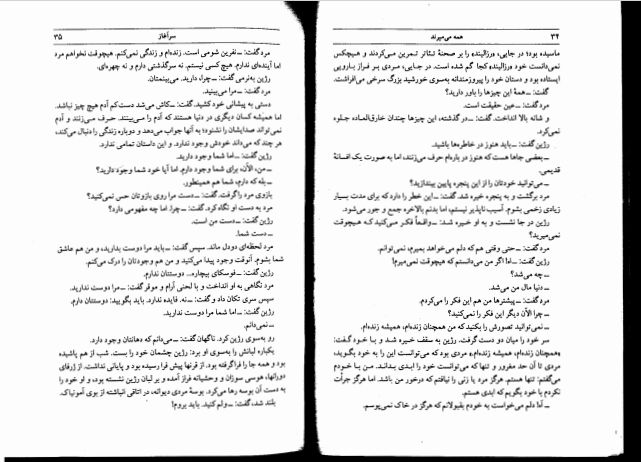 ۳۴ همه می‌میرند
ماسیده بود؛ در جایی، «رزالیند» را بر صحنهٔ تئاتر تمرین می‌کردند و هیچکس
نمی‌دانست خود «رزالیند» کجا گم شده است. در جایی، مردی بر فراز بارویی
ایستاده بود و دستان خود را پیروزمندانه به‌سوی خورشید بزرگ سرخی می‌افراشت.
گفت: ــ همهٔ این چیزها را باور دارید؟
مرد گفت: ــ عین حقیقت است.
و شانه بالا انداخت. گفت: ــ در گذشته، این چیزها چندان خارق‌العاده جلوه
نمی‌کرد.
رژین گفت: ــ باید هنوز در خاطره‌ها باشید.
ــ بعضی جاها هست که هنوز در باره‌ام حرف می‌زنند، اما به صورت یک افسانهٔ
قدیمی.
ــ می‌توانید خودتان را از این پنجره پایین بیندازید؟
مرد برگشت و به پنجره خیره شد. گفت: ــ این خطر را دارد که برای مدت بسیار
زیادی زخمی بشوم. آسیب‌ناپذیر نیستم، اما بدنم بالاخره جمع و جور می‌شود.
رژین در جا نشست و به او خیره شد: ــ واقعاً فکر می‌کنید که هیچوقت
نمی‌میرید؟
مرد گفت: ــ حتی وقتی هم که دلم می‌خواهد بمیرم، نمی‌توانم.
رژین گفت: ــ اما اگر من می‌دانستم که هیچوقت نمی‌میرم!
ــ چه می‌شد؟
ــ دنیا مال من می‌شد.
مرد گفت: ــ پیشترها من هم این فکر را می‌کردم.
ــ چرا الآن دیگر این فکر را نمی‌کنید؟
ــ نمی‌توانید تصورش را بکنید که من همچنان زنده‌ام، همیشه زنده‌ام.
سر خود را میان دو دست گرفت. رژین به سقف خیره شد و با خود گفت:
«همچنان زنده‌ام، همیشه زنده‌ام.» مردی بود که می‌توانست این را به خود بگوید،
مردی تا آن حد مغرور و تنها که می‌توانست خود را ابدی بداند. من با خودم
می‌گفتم: تنها هستم. هرگز مرد یا زنی را نیافتم که درخور من باشد. اما هرگز جرأت
نکردم با خود بگویم که ابدی هستم.
ــ آه! دلم می‌خواست به خودم بقبولانم که هرگز در خاک نمی‌پوسم.
سرآغاز ۳۵
مرد گفت: ــ نفرین شومی است. زنده‌ام و زندگی نمی‌کنم. هیچوقت نخواهم مرد
اما آینده‌ای ندارم. هیچ کسی نیستم. نه سرگذشتی دارم و نه چهره‌ای.
رژین به‌نرمی گفت: ــ چرا، دارید. می‌بینمتان.
مرد گفت: ــ مرا می‌بینید.
دستی به پیشانی خود کشید. گفت: ــ کاش می‌شد دست کم آدم هیچ چیز نباشد.
اما همیشه کسان دیگری در دنیا هستند که آدم را می‌بینند. حرف می‌زنند و آدم
نمی‌تواند صدایشان را نشنود؛ به آنها جواب می‌دهد و دوباره زندگی را دنبال می‌کند،
هر چند که می‌داند خودش وجود ندارد. و این داستان تمامی ندارد.
رژین گفت: ــ اما شما وجود دارید.
ــ من، الآن، برای شما وجود دارم. اما آیا خود شما وجود دارید؟
ــ بله که دارم، شما هم همینطور.
بازوی مرد را گرفت. گفت: ــ دست مرا روی بازوتان حس نمی‌کنید؟
مرد به دست او نگاه کرد. گفت: ــ چرا اما چه مفهومی دارد؟
رژین گفت: ــ دست من است.
ــ دست شما.
مرد لحظه‌ای دودل ماند. سپس گفت: ــ باید مرا دوست بدارید، و من هم عاشق
شما بشوم. آنوقت وجود پیدا می‌کنید و من هم وجودتان را درک می‌کنم.
رژین گفت: ــ فوسکای بیچاره... دوستتان ندارم.
مرد نگاهی به او انداخت و با لحنی آرام و موقر گفت: ــ مرا دوست ندارید.
سپس سری تکان داد و گفت: ــ نه. فایده ندارد. باید بگویید: دوستتان دارم.
رژین گفت: ــ اما شما مرا دوست ندارید.
ــ نمی‌دانم.
رو به‌سوی رژین کرد. ناگهان گفت: ــ می‌دانم که دهانتان وجود دارد.
یکباره لبانش را به‌سوی او برد؛ رژین چشمان خود را بست. شب از هم پاشیده
بود و همه جا را فراگرفته بود. از قرنها پیش فرا رسیده بود و پایانی نداشت. از ژرفای
دورانها، هوسی سوزان و وحشیانه فراز آمده و بر لبان رژین نشسته بود، و او خود را
به دست آن بوسه رها می‌کرد. بوسهٔ مردی دیوانه، در اتاقی انباشته از بوی آمونیاک.
بلند شد، گفت: ــ ولم کنید. باید بروم!